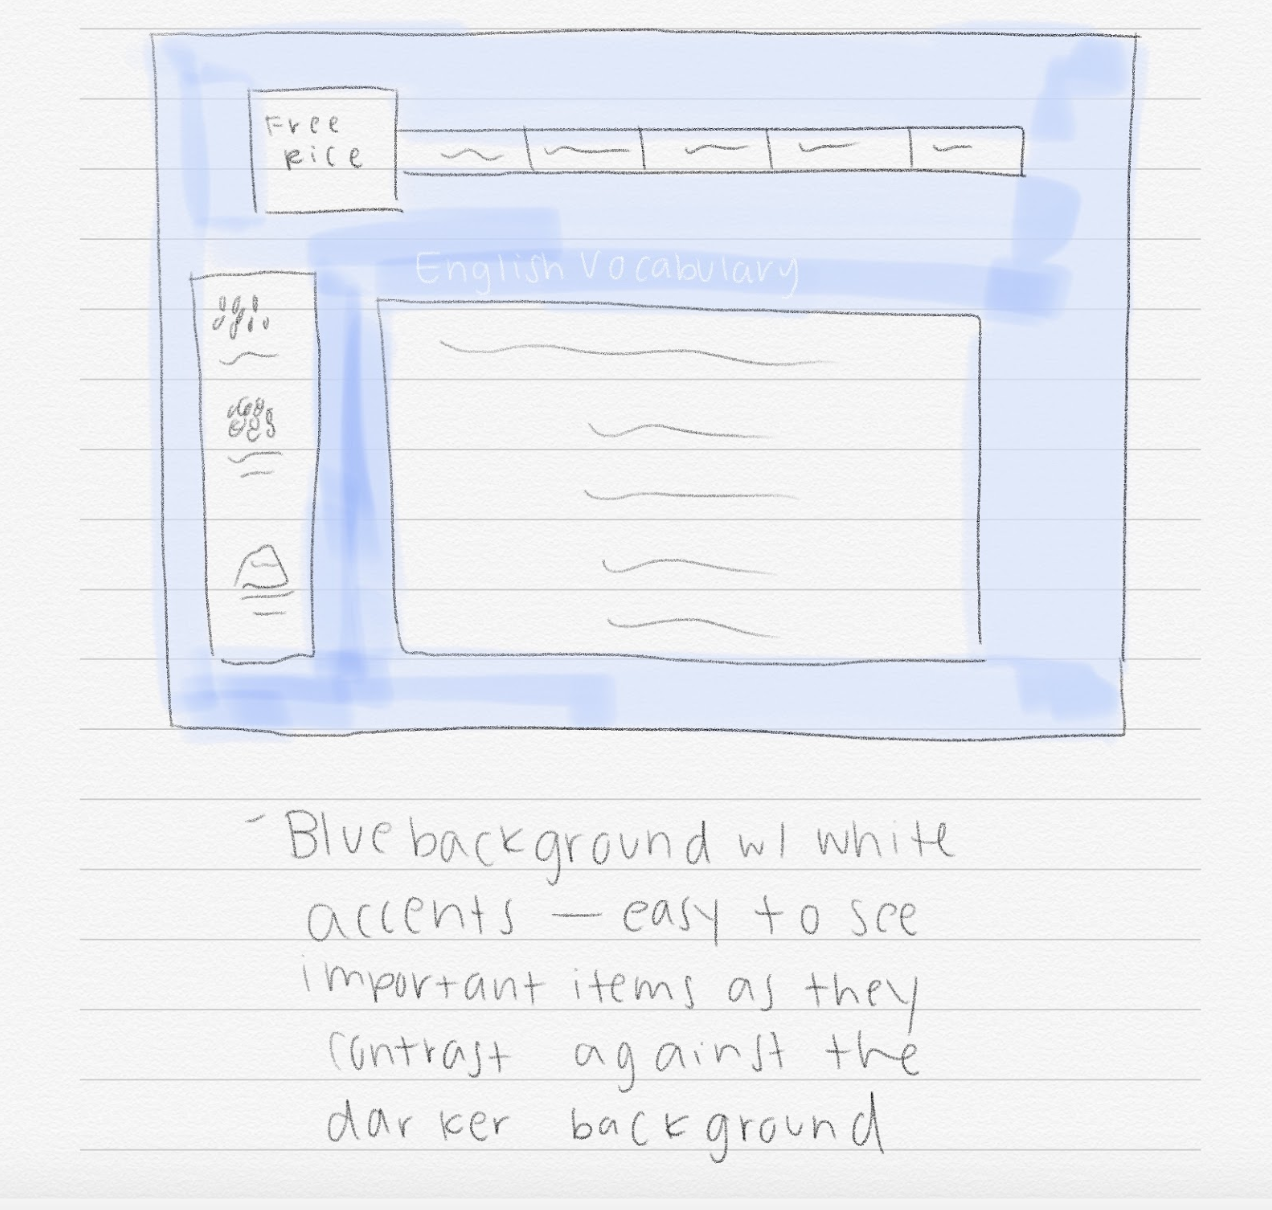 Free
Rice
English Vocabulary
- Blue background w/ white
accents — easy to see
important items as they
contrast against the
darker background